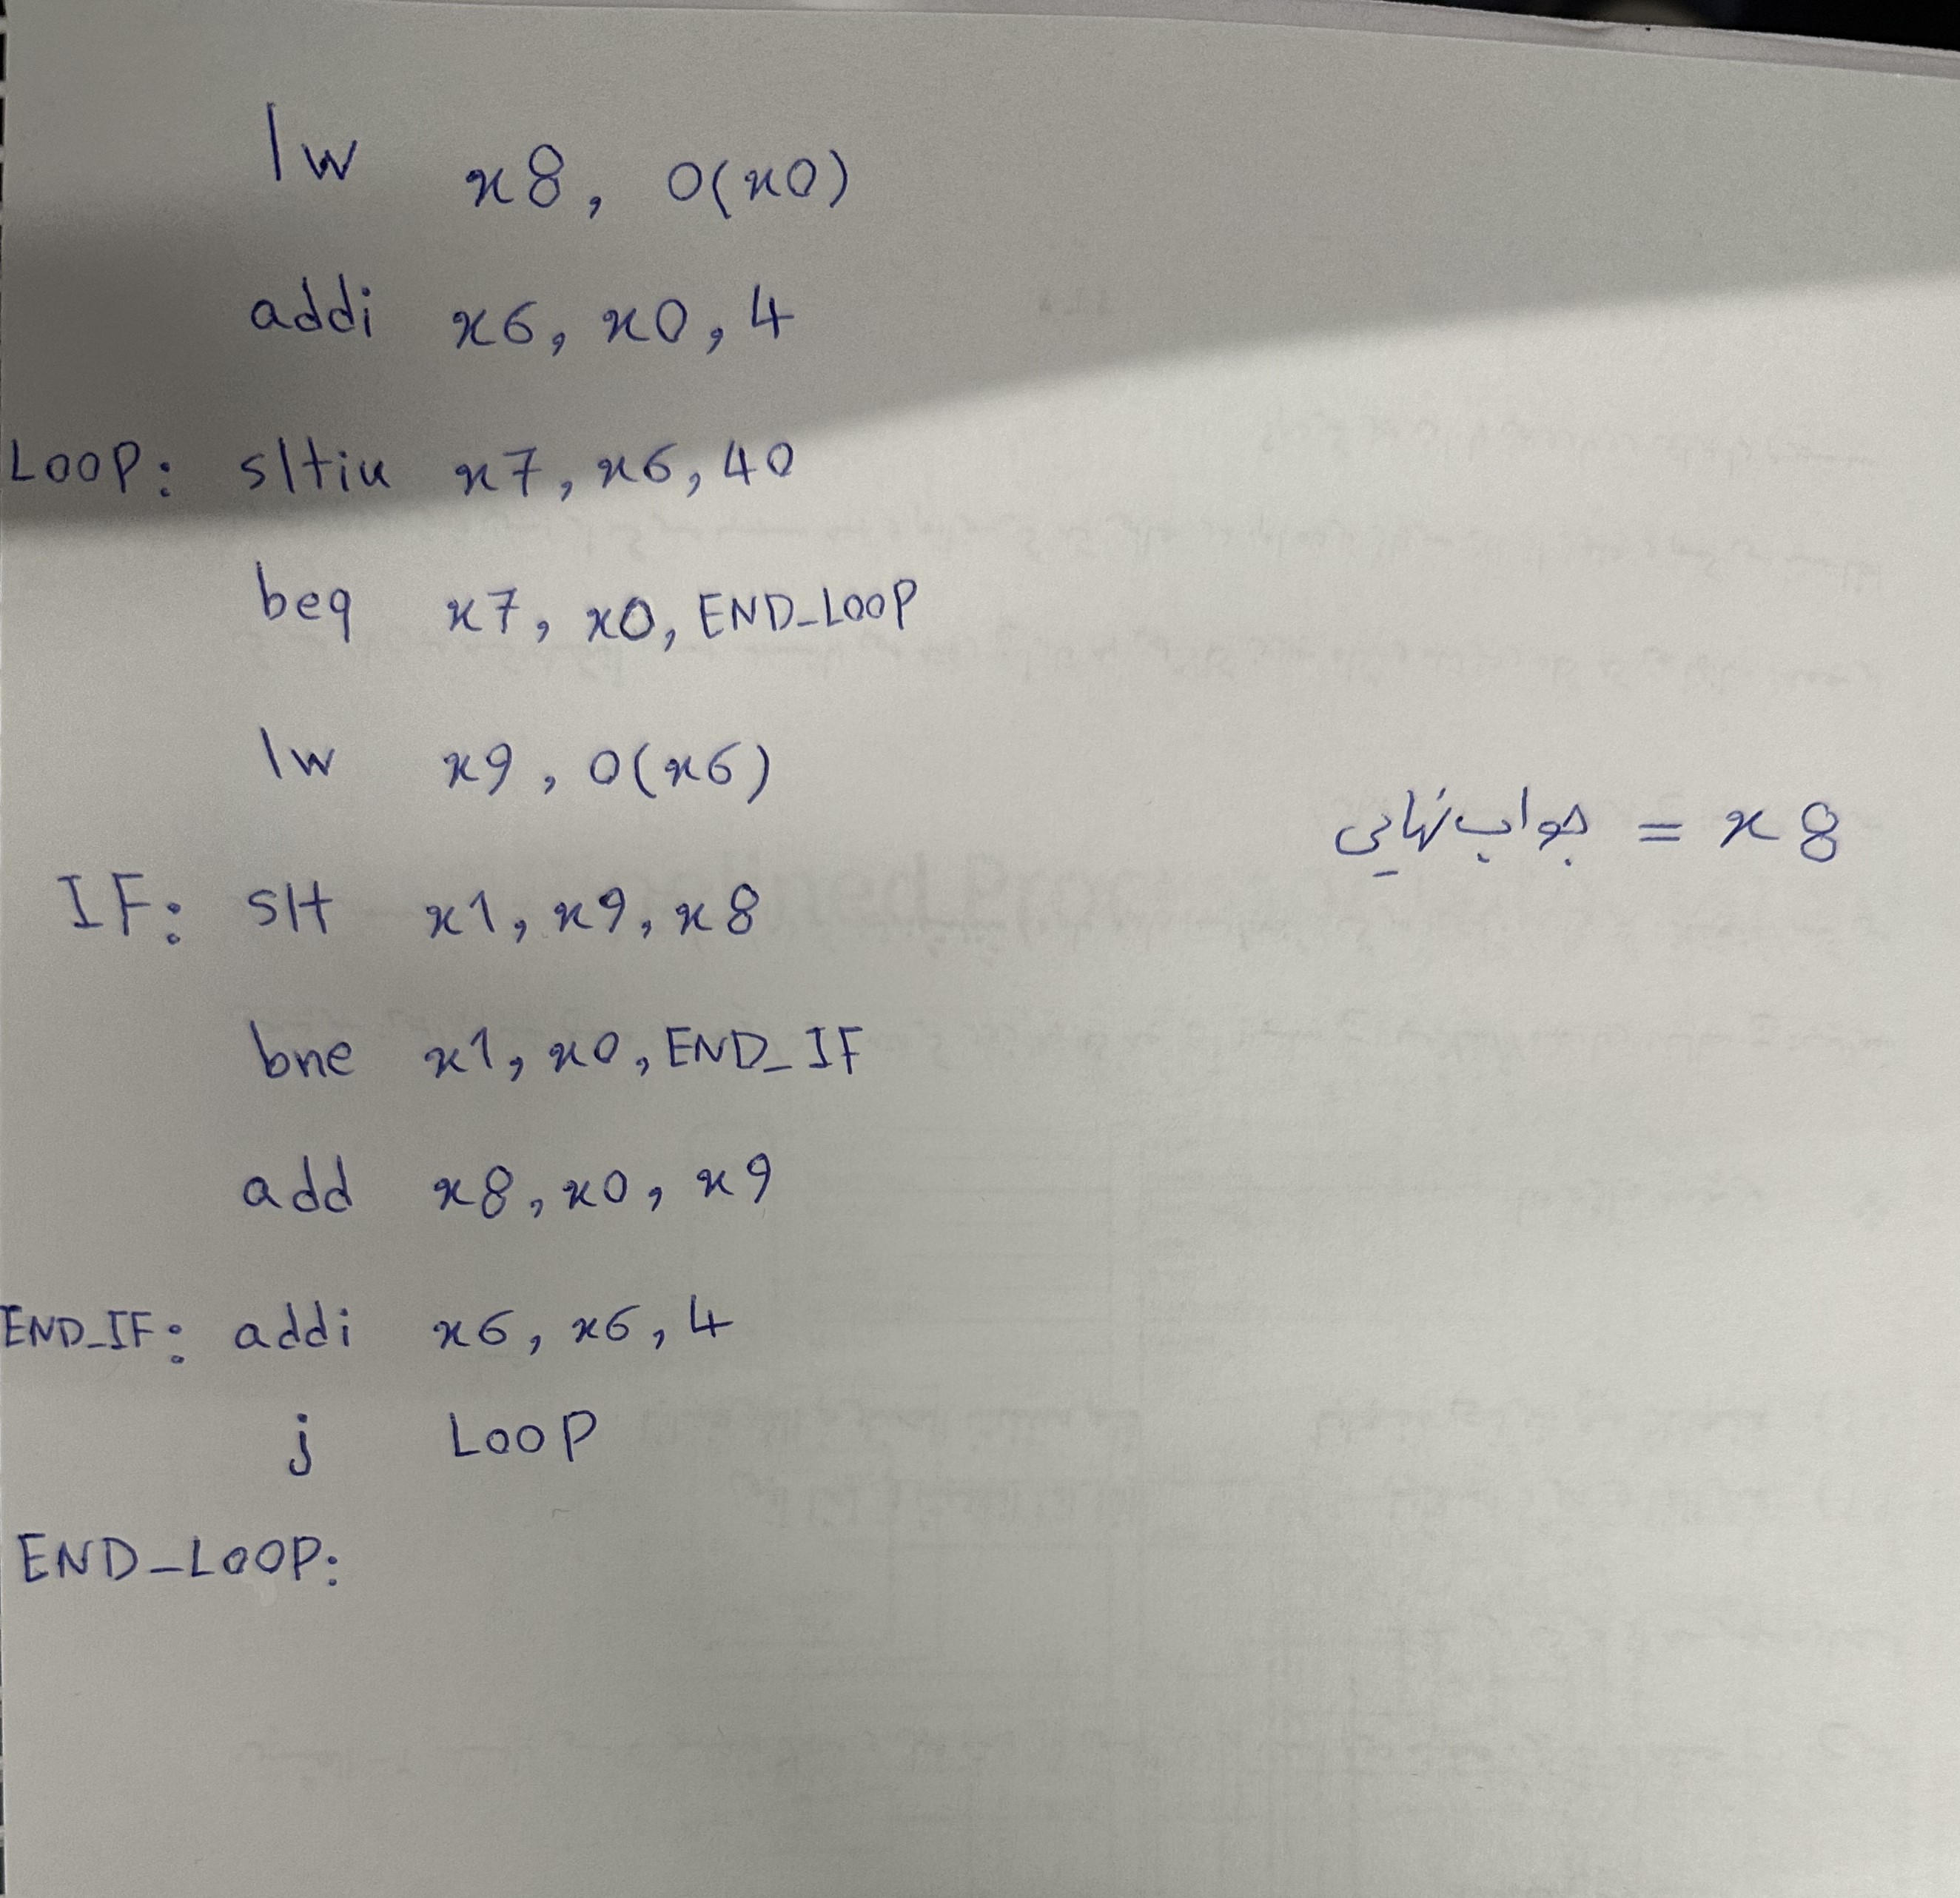 lw x8, 0(x0)
addi x6, x0, 4
LOOP: sltiu x7, x6, 40
beq x7, x0, END_LOOP
lw x9, 0(x6)
جواب نهایی = x8
IF: slt x1, x9, x8
bne x1, x0, END_IF
add x8, x0, x9
END_IF: addi x6, x6, 4
j LOOP
END_LOOP: